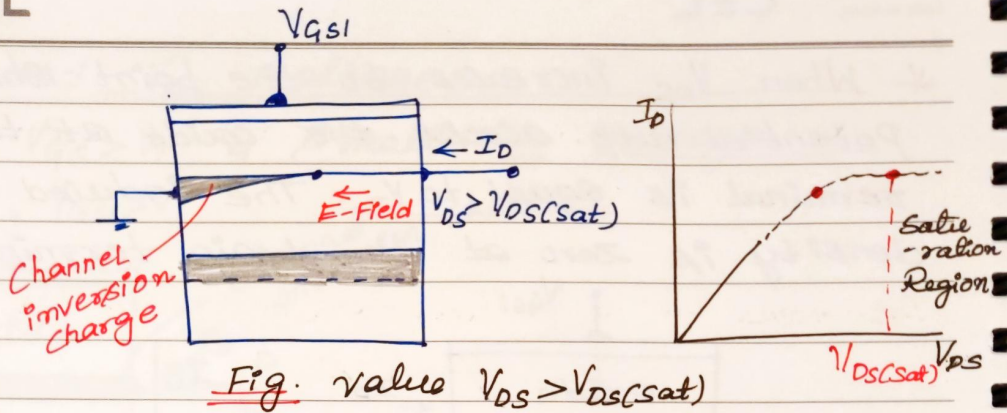 V_GS1
← I_D
E-Field
V_DS > V_DS(sat)
Channel
inversion
charge
I_D
satu
-ration
Region
V_DS(sat)
V_DS
Fig. value V_DS > V_DS(sat)